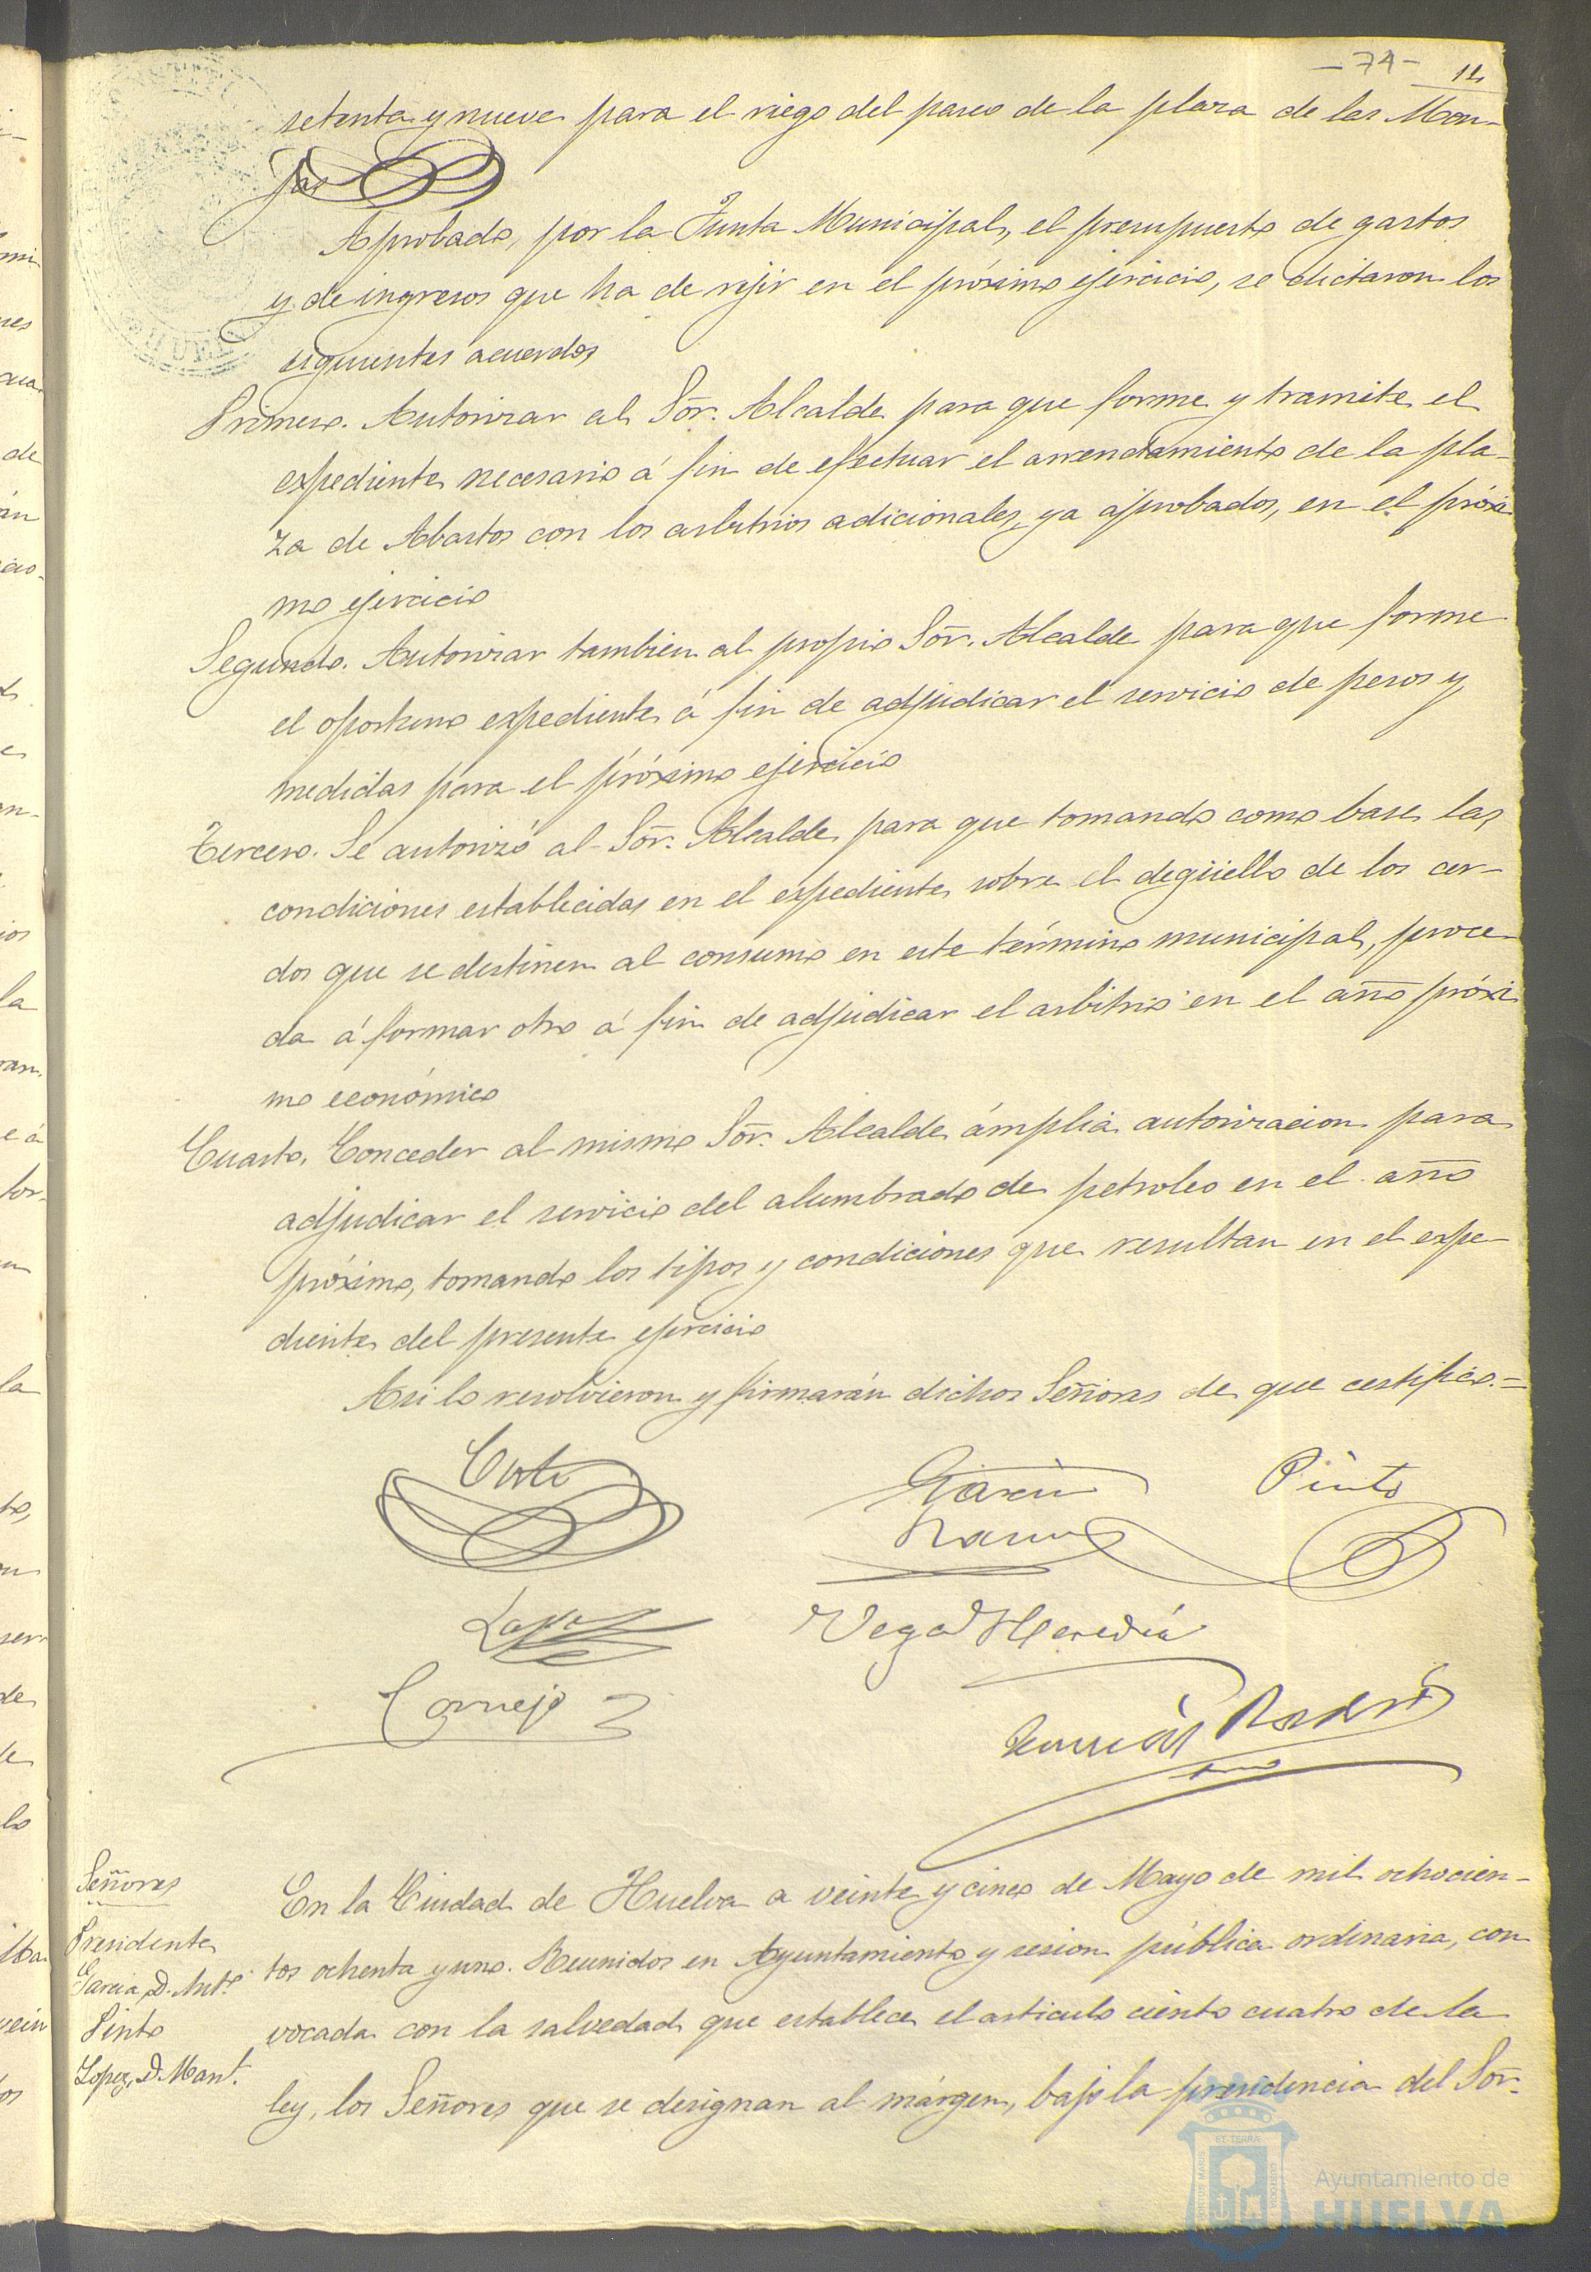 -74- 11
setenta y nueve para el riego del paseo de la plaza de las Mon-
jas
Aprobado, por la Junta Municipal, el presupuesto de gastos
y de ingresos que ha de rejir en el próximo ejercicio, se dictaron los
siguientes acuerdos
Primero. Autorizar al Sõr. Alcalde para que forme y tramite el
expediente necesario á fin de efectuar el arrendamiento de la pla-
za de Abastos con los arbitrios adicionales, ya aprobados, en el próxi
mo ejercicio
Segundo. Autorizar tambien al propio Sõr. Alcalde para que forme
el oportuno expediente á fin de adjudicar el servicio de pesos y
medidas para el próximo ejercicio
Tercero. Se autorizó al Sõr. Alcalde para que tomando como base las
condiciones establecidas en el expediente sobre el degüello de los cer-
dos que se destinen al consumo en este término municipal, proce-
da á formar otro á fin de adjudicar el arbitrio en el año próxi
mo económico
Cuarto. Conceder al mismo Sõr. Alcalde ámplia autorizacion para
adjudicar el servicio del alumbrado de petroleo en el año
próximo, tomando los tipos y condiciones que resultan en el expe-
diente del presente ejercicio
Asi lo resolvieron y firmarán dichos Señores de que certifico.=
Garcia Pinto
Ramos
Lopez Vega Heredia
Cornejo
Señores En la Ciudad de Huelva a veinte y cinco de Mayo de mil ochocien-
Presidente
Garcia, D. Antº tos ochenta y uno. Reunidos en Ayuntamiento y sesion pública ordinaria, con
Pinto vocada con la salvedad que establece el articulo ciento cuatro de la
Lopez, D. Manl. ley, los Señores que se designan al márgen, bajo la presidencia del Sõr.
Ayuntamiento de
HUELVA